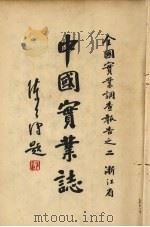 全國實業調查報告之二 浙江省
中國實業誌
陳公博題